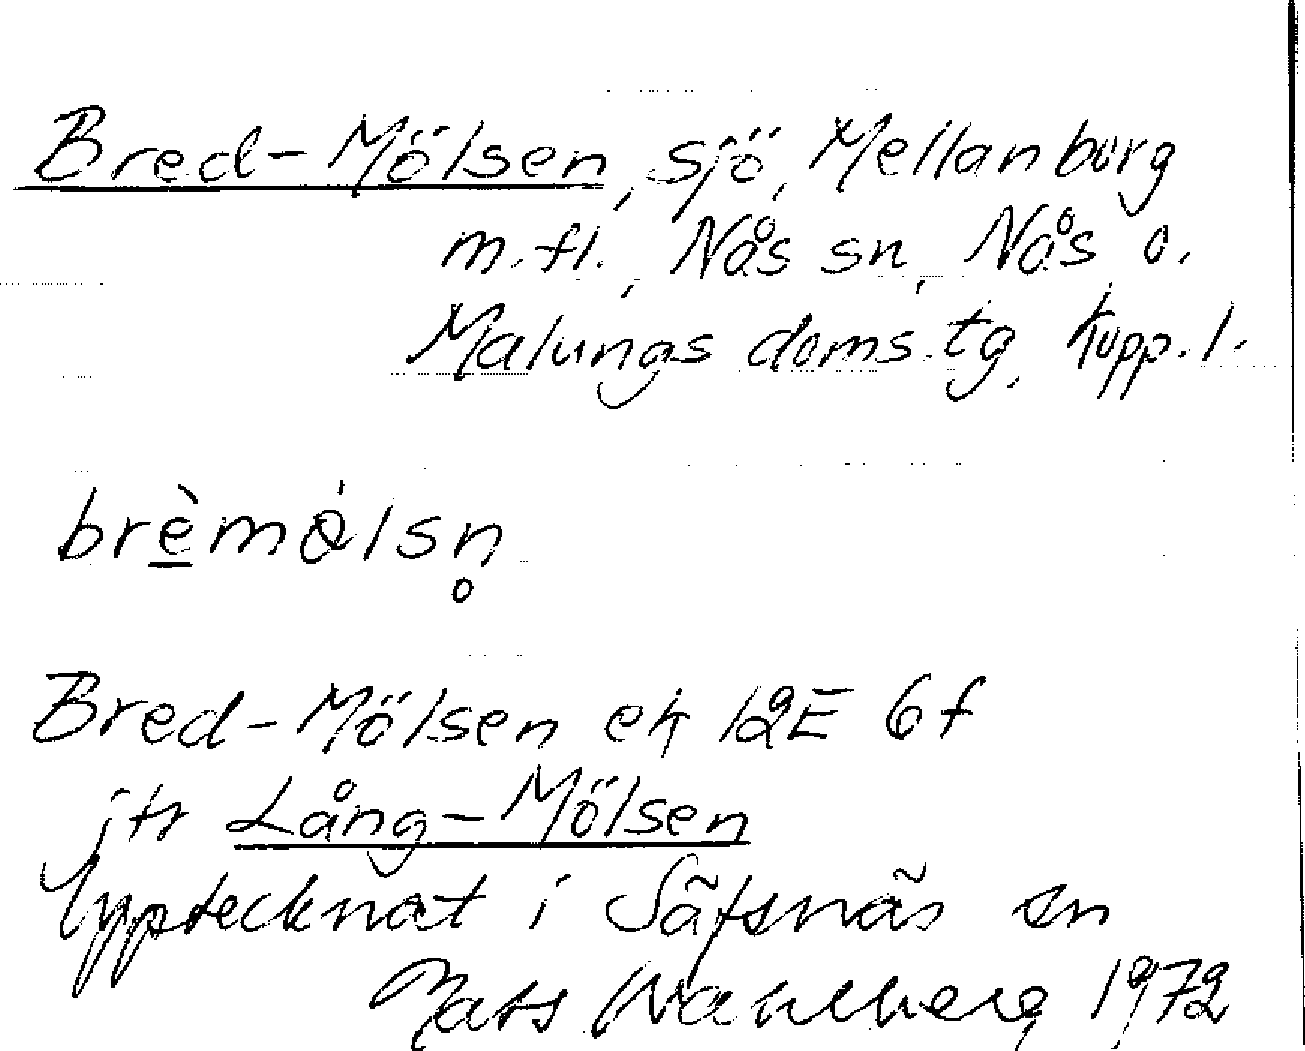 Bred-Mölsen, sjö, Mellanborg
m.fl., Nås sn, Nås o.
Malungs doms.tg, Kopp. l.
brè̱mə̇lsn̥
Bred-Mölsen ek 12E 6f
jfr Lång-Mölsen
Upptecknat i Säfsnäs sn
Mats Wahlberg 1972